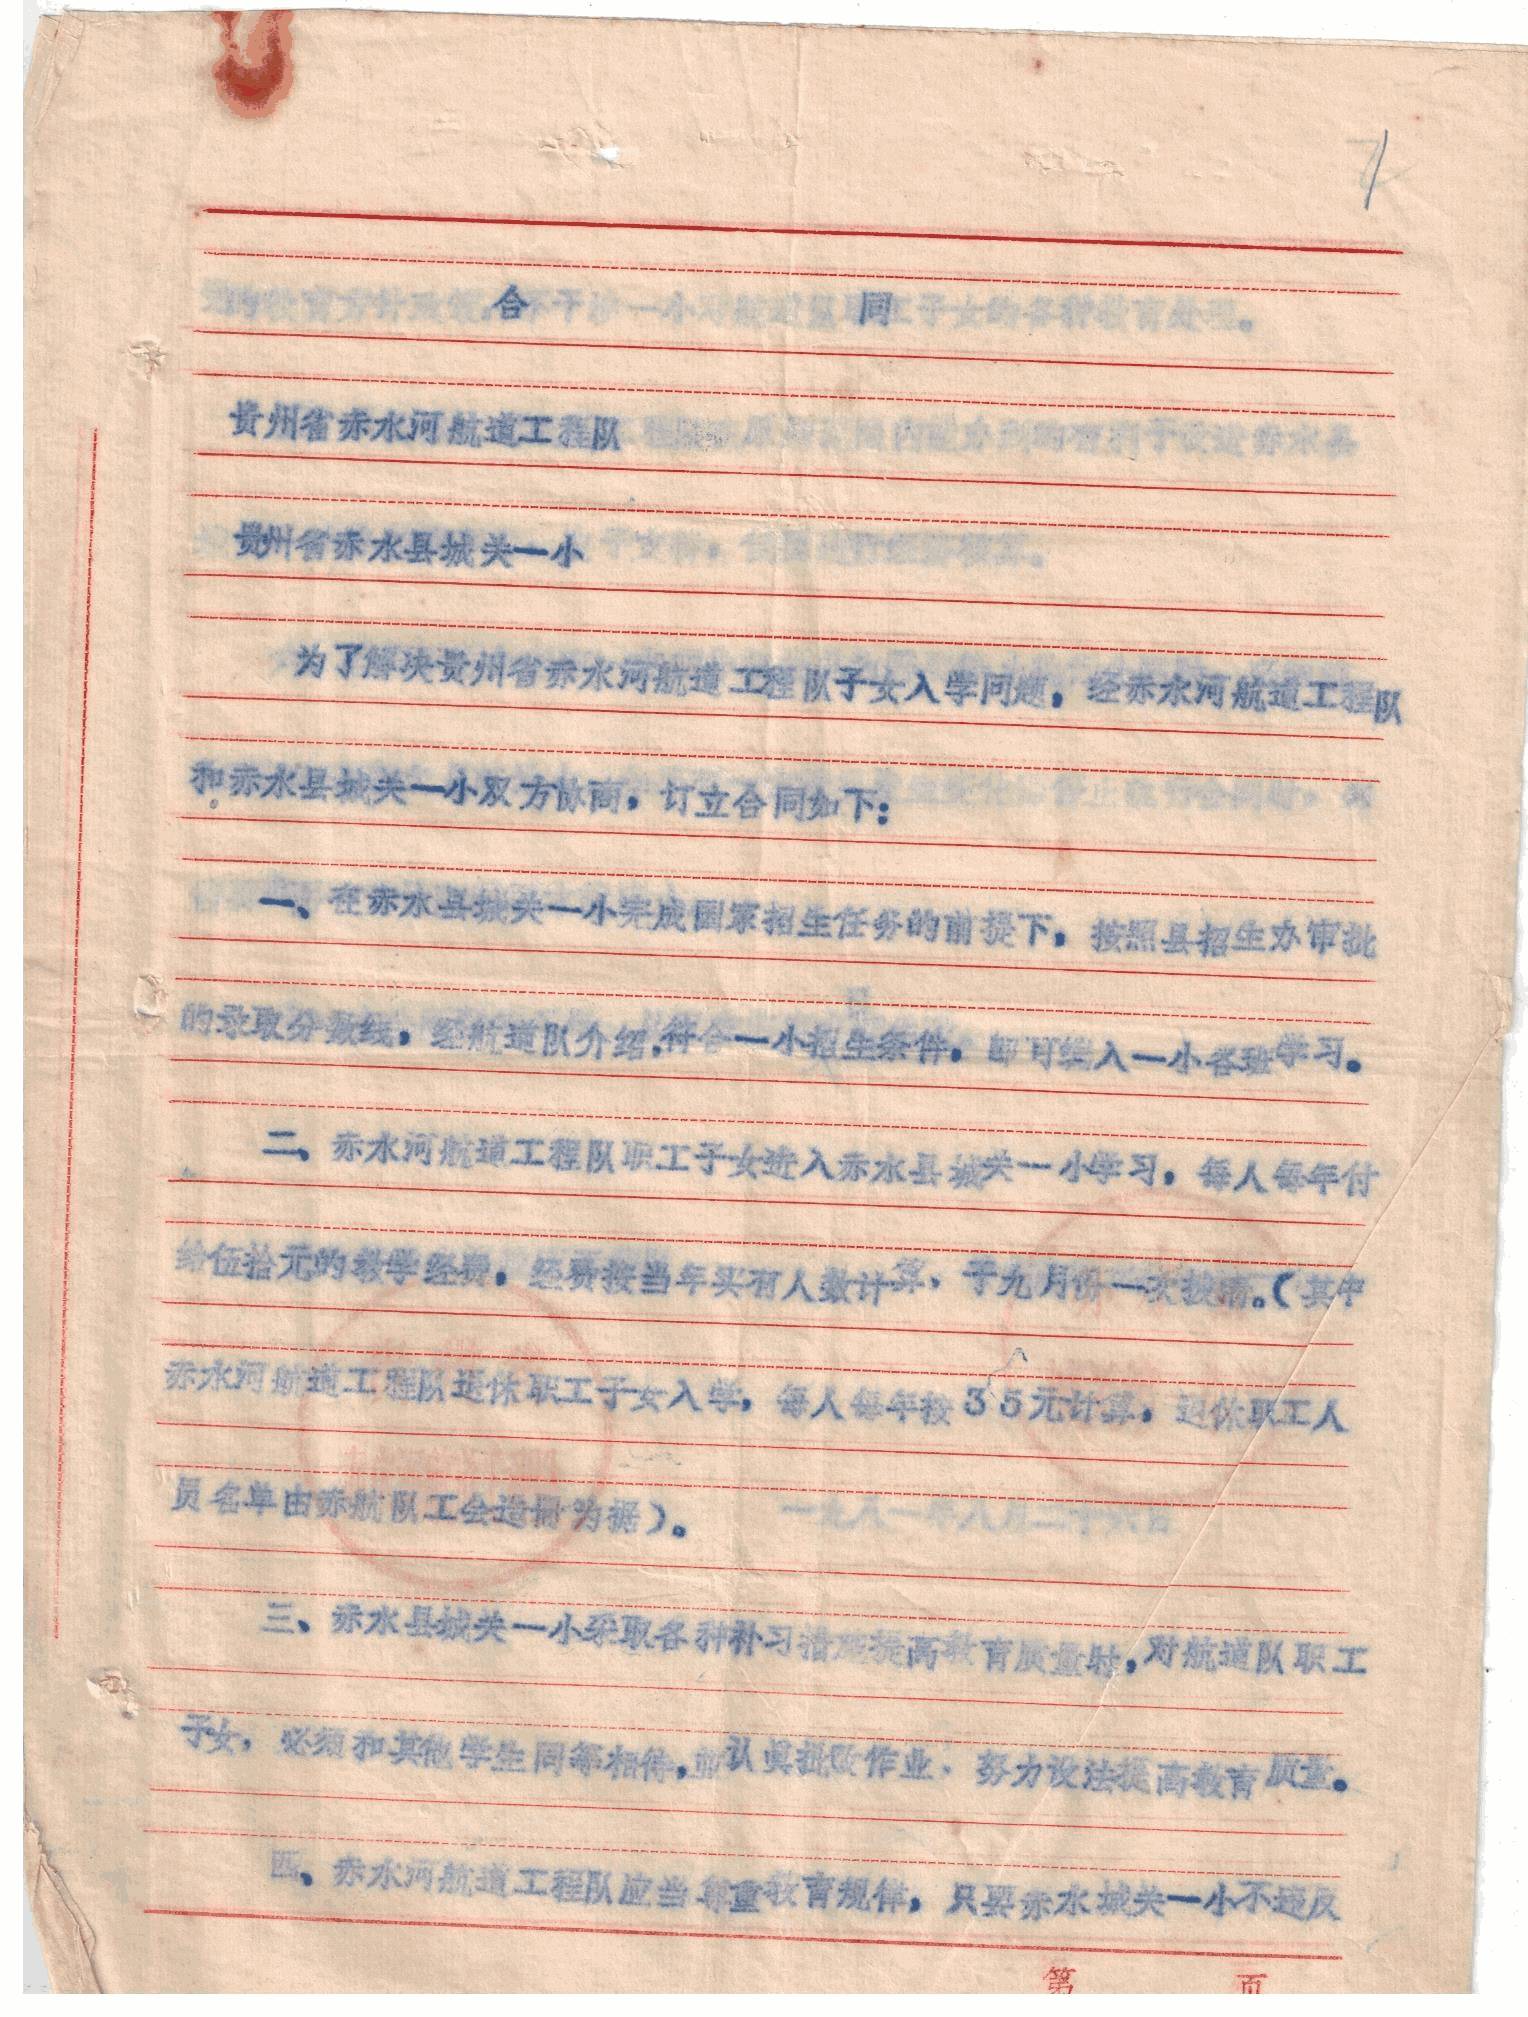 1
合 同
贵州省赤水河航道工程队
贵州省赤水县城关一小
为了解决贵州省赤水河航道工程队子女入学问题，经赤水河航道工程队
和赤水县城关一小双方协商，订立合同如下：
一、在赤水县城关一小完成国家招生任务的前提下，按照县招生办审批
的录取分数线，经航道队介绍，符合一小招生条件，即可编入一小各班学习。
二、赤水河航道工程队职工子女进入赤水县城关一小学习，每人每年付
给伍拾元的教学经费，经费按当年实有人数计算，于九月份一次拨清。（其中
赤水河航道工程队退休职工子女入学，每人每年按35元计算，退休职工人
员名单由赤航队工会造册为据）。
一九八一年八月二十六日
三、赤水县城关一小采取各种补习措施提高教育质量时，对航道队职工
子女，必须和其他学生同等相待，认真批改作业，努力设法提高教育质量。
四、赤水河航道工程队应当尊重教育规律，只要赤水城关一小不违反
第 页